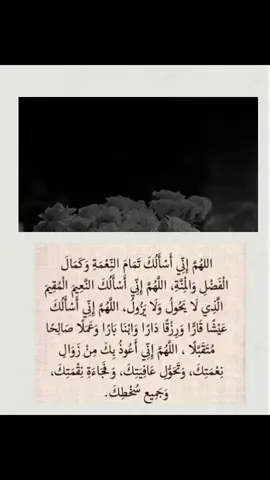 اللهُمَّ إِنِّي أَسْأَلُكَ تَمَامَ النِّعْمَةِ وَكَمَالَ
الْفَضْلِ وَالْمِنَّةِ، اللَّهُمَّ إِنِّي أَسْأَلُكَ النَّعِيمَ الْمُقِيمَ
الَّذِي لَا يَحُولُ وَلَا يَزُولُ، اللَّهُمَّ إِنِّي أَسْأَلُكَ
عَيْشًا قَارًّا وَرِزْقًا دَارًا وَابْنَا بَارًا وَعَمَلًا صَالِحًا
مُتَقَبَّلًا ، اللَّهُمَّ إِنِّي أَعُوذُ بِكَ مِنْ زَوَالِ
نِعْمَتِكَ، وَتَحَوُّلِ عَافِيَتِكَ، وَفُجَاءَةِ نِقْمَتِكَ،
وَجَمِيعِ سُخْطِكَ.